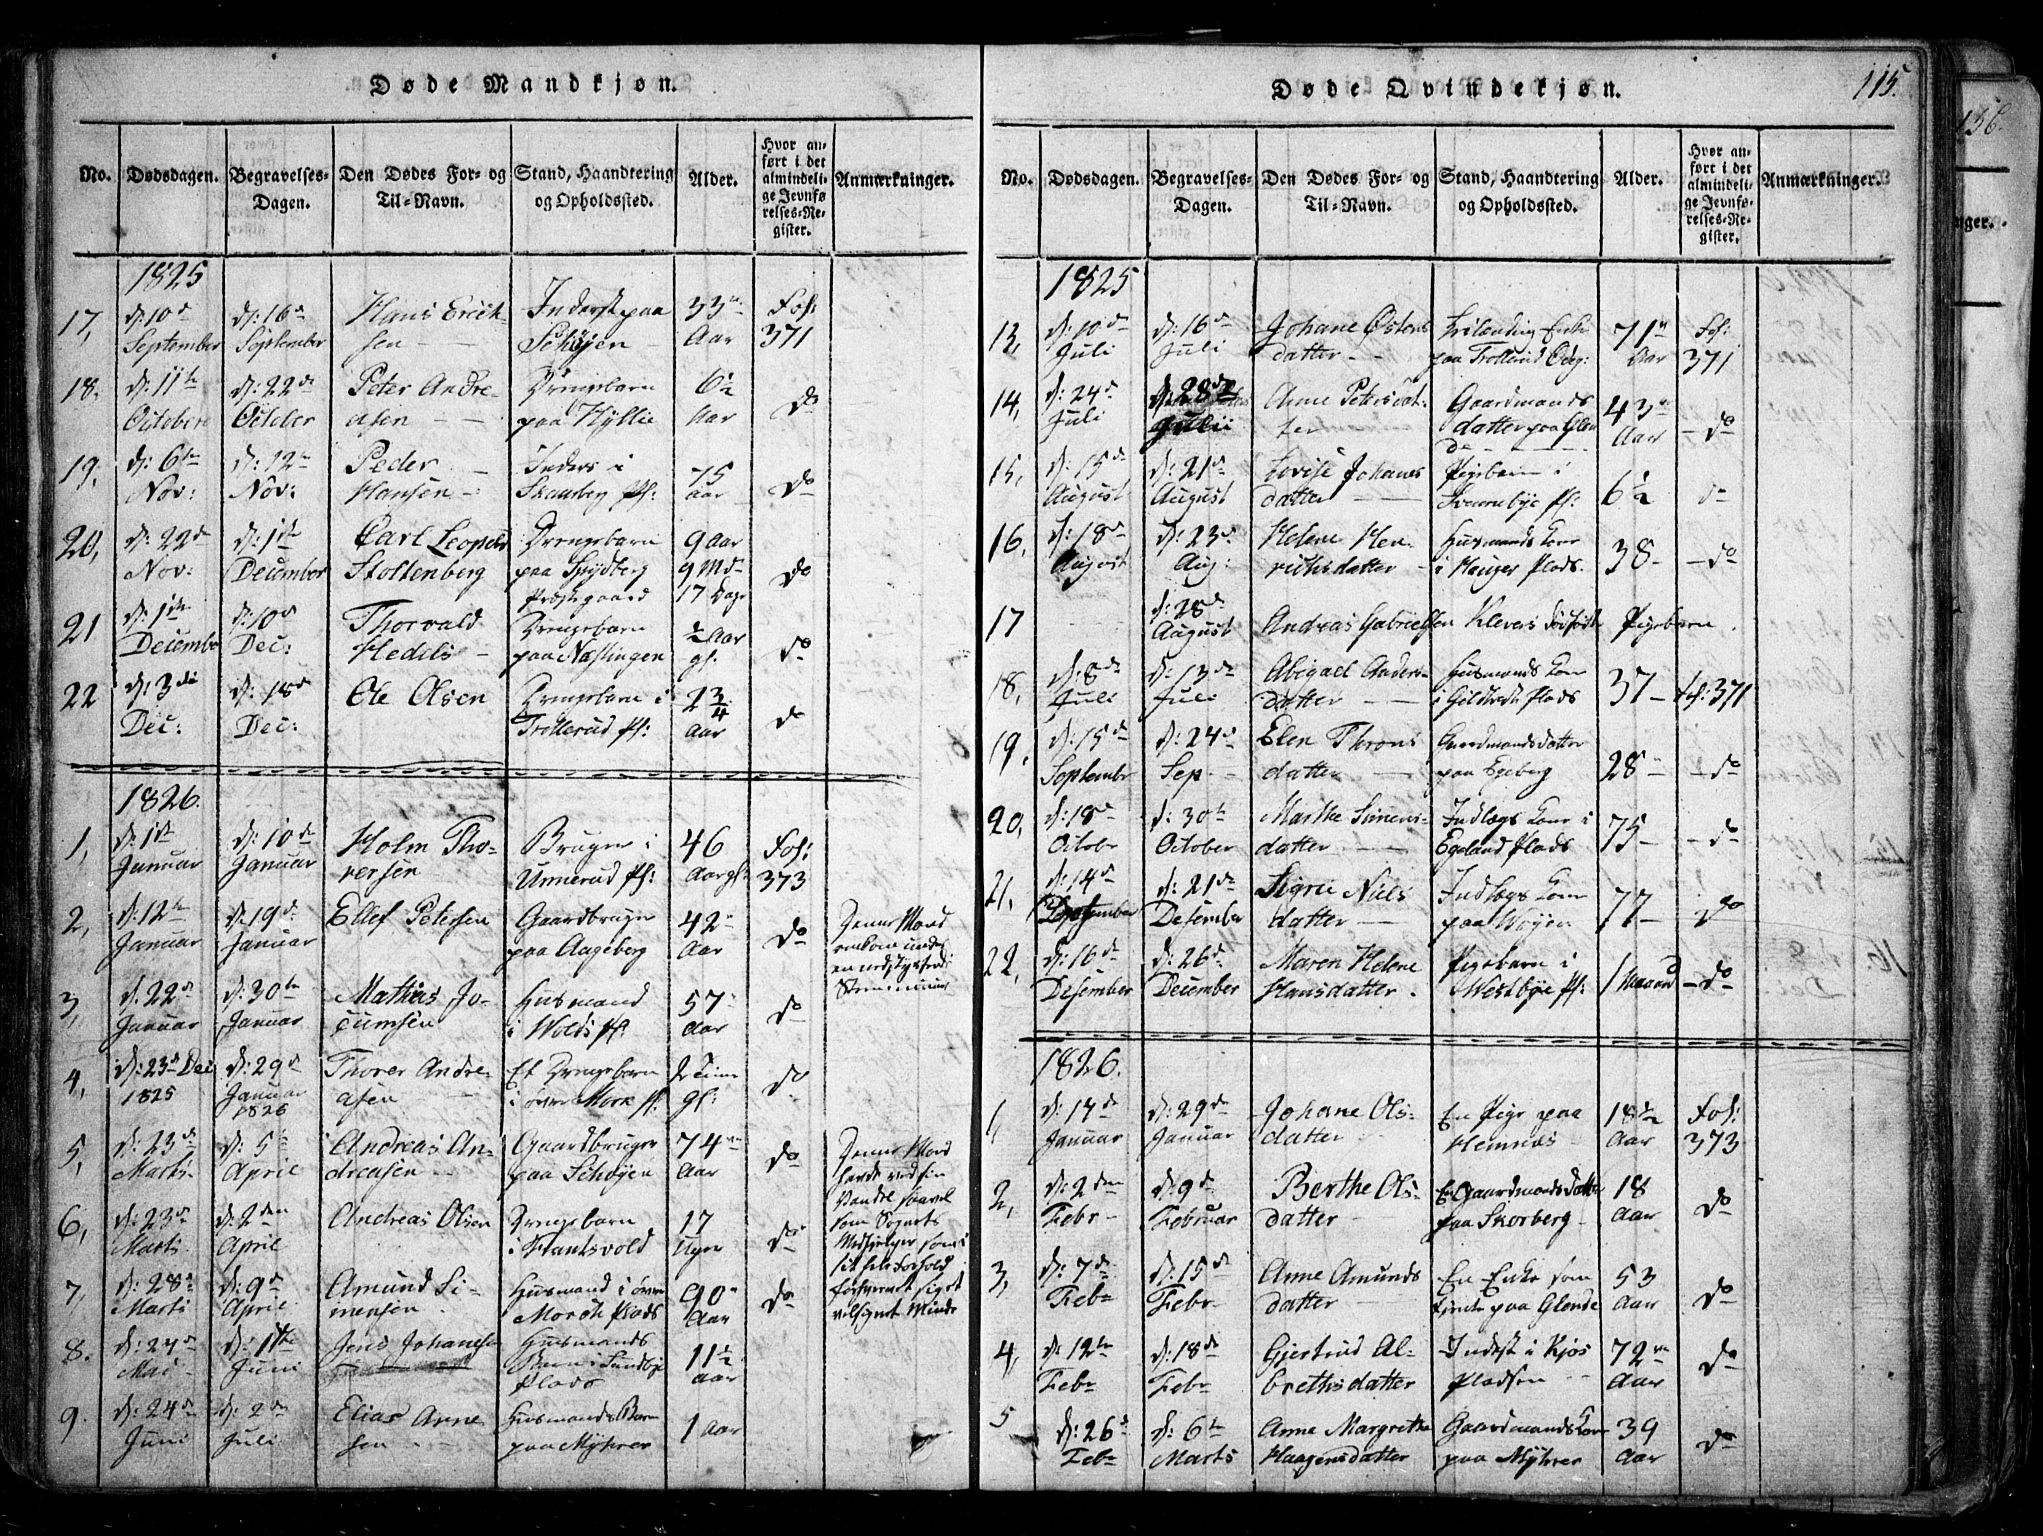 Døde Mandkjøn.
No. Dødsdagen. Begravelses-Dagen. Den Dødes For- og Til-Navn. Stand, Haandtering og Opholdssted. Alder. Hvor anført i det almindelige Jevnførelses-Register. Anmærkninger.
1825
17, d: 10d September d: 16d September Hans Erichsen Inderst paa Schøjen 33 Aar Fol: 371
18. d: 11te October d: 22de October Peter Andreasen Drengebarn paa Hyllie 6½ Aar do
19, d: 6te Nov: d: 12te Nov: Peder Hansen Inders i Skamby Pl: 75 aar do
20, d: 22de Nov: d: 1ste December Carl Leopold Stoltenberg Drengebarn paa Spydberg Præstegaard 9 aar 9 Md 17 Dage do
21 d: 1ste December d: 10d Dec: Thorvald Hedels Drengebarn paa Næslingen ½ Aar gl. do
22 d: 3die Dec: d: 18d Dec: Ole Olsen Drengebarn i Trollerud Pl: 2¾ aar do
1826.
1, d: 1ste Januar d: 10de Januar Holm Thoversen Bruger i Unnerud Pl: 46 Aar gl: Fol: 373
2, d: 12te Januar d: 19d Januar Ellef Petersen Gaardbruger paa Aageberg 42 Aar do Denne Mand omkom under en nedstyrtende
3, d. 22de Januar d: 30te Januar Mathias Jocumsen Husmand i Wolds Pl: 57 aar do
4, d: 23d Dec 1825 d: 29d Januar 1826 Thorer Andreasen Et Drengebarn i øvre Mork Pl: 2 Timer gl: do
5, d: 23de Marts d: 5te April Andreas Andreasen Gaardbruger paa Schøyen 74 Aar do Denne Mand havde ved sin Vandel saavel som Sognets Medhielper som i sit hele Forhold forhvervet sig et velsignet Minde
6, d: 23de Marts d: 2den April Andreas Olsen Drengebarn i Frantsvold 17 Uger do
7, d: 28de Marts d: 9d April Amund Simensen Husmand i øvre Morch Plads 90 Aar do
8. d: 27de Mai d: 1ste Juni Jens Johansen Husmands Barn i Sundbye Plads 11½ aar
9. d: 24de Juni d: 2den Juli Elias Arnesen Husmands Barn paa Myhrer 1 aar
Døde Qvindekjøn.
115.
No. Dødsdagen. Begravelses-Dagen. Den Dødes For- og Til-Navn. Stand, Haandtering og Opholdssted. Alder. Hvor anført i det almindelige Jevnførelses-Register. Anmærkninger.
1825
13, d: 10de Juli d: 16d Juli Johane Østensdatter Enke paa Trollerud 71 Aar Fol: 371
14, d: 24d Juli d: 28de Julii Anne Petersdatter Gaardmands datter paa Glende 43 Aar do
15, d: 15de August d: 21de August Lovise Johansdatter Pigebarn i Svennebye Pl: 6½ do
16, d: 18de August d: 23de Aug: Helene Henrichsdatter Husmands Kone i Hauger Plads. 38 do
17 d: 28de August Andreas Gabrielsen Klevers dødfødt Pigebarn.
18, d: 8de Juli d: 13de Juli Abigael Andersdatter Husmands Kone i Gildtvedt Plads 37 fol: 371
19, d: 15de September d: 24de Sep. Elen Thronsdatter Gaardmands datter paa Egeberg 28 do
20, d: 18de Octobr d: 30te October Marthe Simensdatter Indlægs Kone i Egeland Plads 75 do
21, d: 14de d: 21de Desember Sigrie Nielsdatter Indlægs Kone paa Woyen 77 do
22, d: 16de Desember d: 26de December Maren Helene Hansdatter. Pigebarn i Westbye Pl: 1 Maaned do
1826.
1 d: 17de Januar d: 29de Januar Johane Olsdatter En Pige paa Hemnæs 18½ Aar Fol: 373
2, d: 2den Febr d: 9d Februar Berthe Olsdatter En Gaardmands datter paa Skorberg 18 Aar do
3, d: 7de Febr d: 15de Febr Anne Amundsdatter En Enke som Inderste paa Glende 53 Aar do
4, d: 12te Febr d: 18de Febr Gjertrud Albrethsdatter Inderst i Kjos Pladsen 72 Aar do
5 d: 26de Febr d: 6te Marts Anne Margrethe Haagensdatter Gaardmands Kone paa Myhrer 39 Aar do
136.
nger.